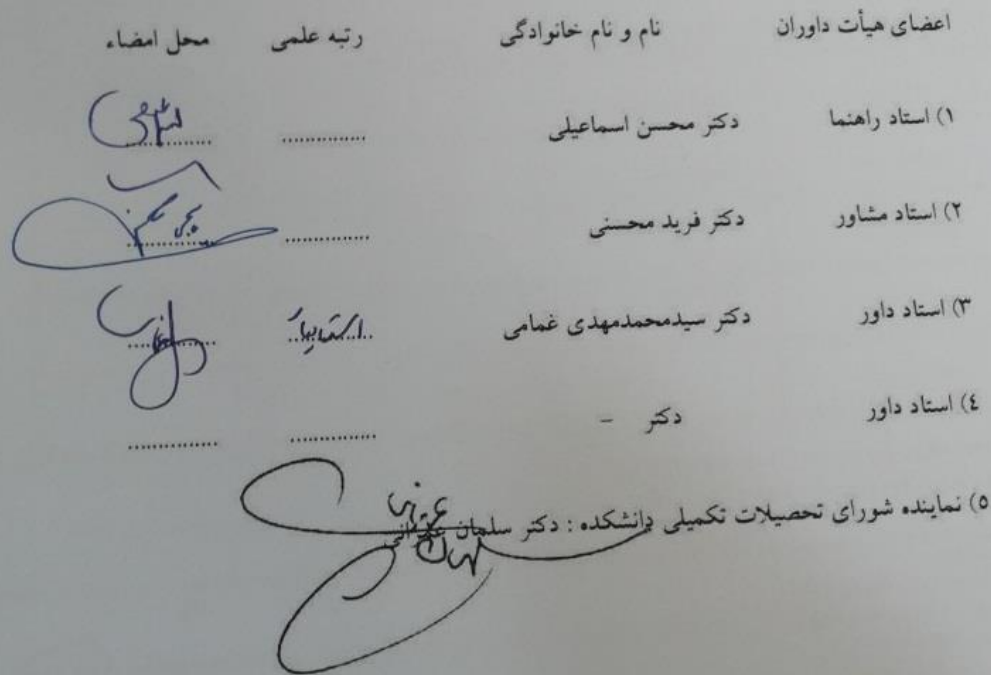 اعضای هیأت داوران نام و نام خانوادگی رتبه علمی محل امضاء
۱) استاد راهنما دکتر محسن اسماعیلی .............. ..............
۲) استاد مشاور دکتر فرید محسنی .............. ..............
۳) استاد داور دکتر سیدمحمدمهدی غمامی استادیار ..............
٤) استاد داور دکتر – .............. ..............
٥) نماینده شورای تحصیلات تکمیلی دانشکده : دکتر سلمان